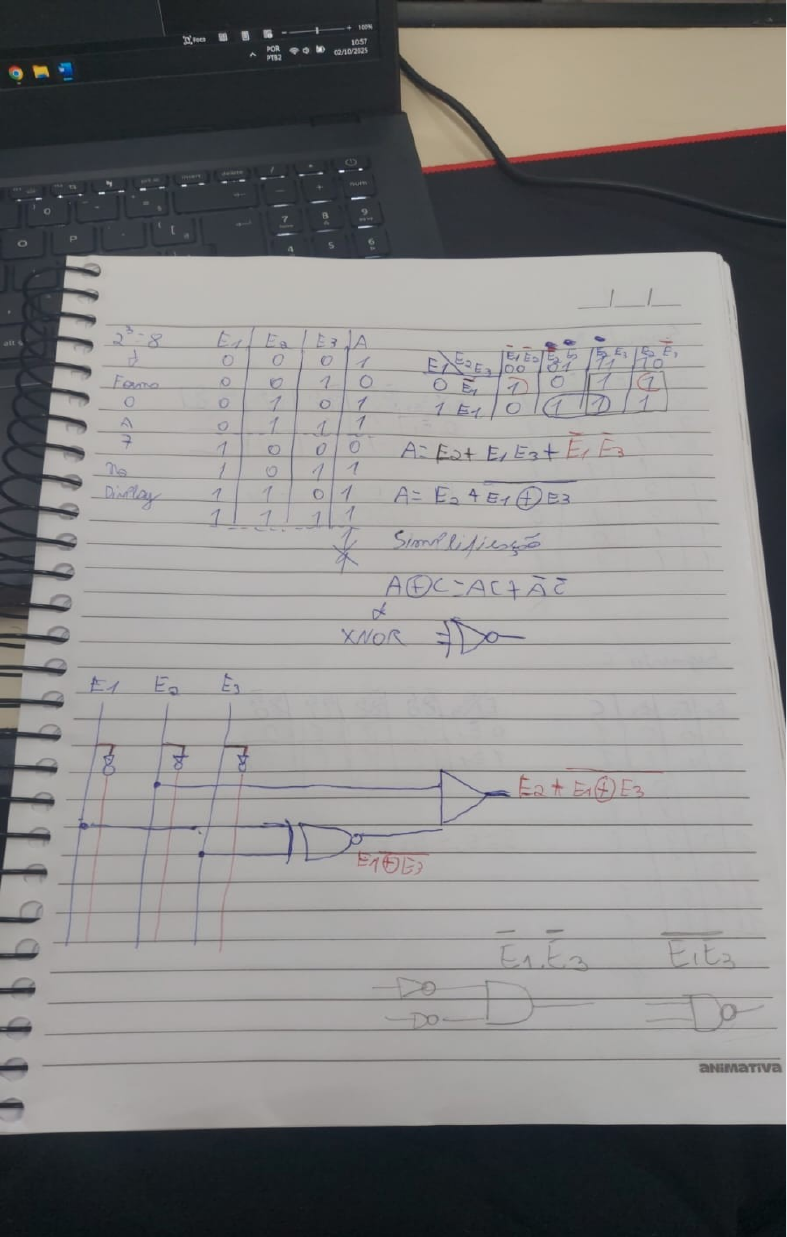 100%
POR
PTB2
10:57
02/10/2025
7 8 9
4 5 6
O P
2³=8 E1 E2 E3 A
0 0 0 1
0 0 1 0
0 1 0 1
0 1 1 1
1 0 0 0
1 0 1 1
Display 1 1 0 1
1 1 1 1
E1 E2E3 00 01 11 10
0 E̅1 1 0 1 1
1 E1 0 1 1 1
A = E2 + E1 E3 + E̅1 E̅3
A = E2 + \overline{E1 ⊕ E3}
Simplificação
A⊕C = AC + A̅ C̅
XNOR
E1 E2 E3
E2 + \overline{E1 ⊕ E3}
\overline{E1 ⊕ E3}
E̅1 . E̅3 \overline{E1E3}
ANIMATIVA